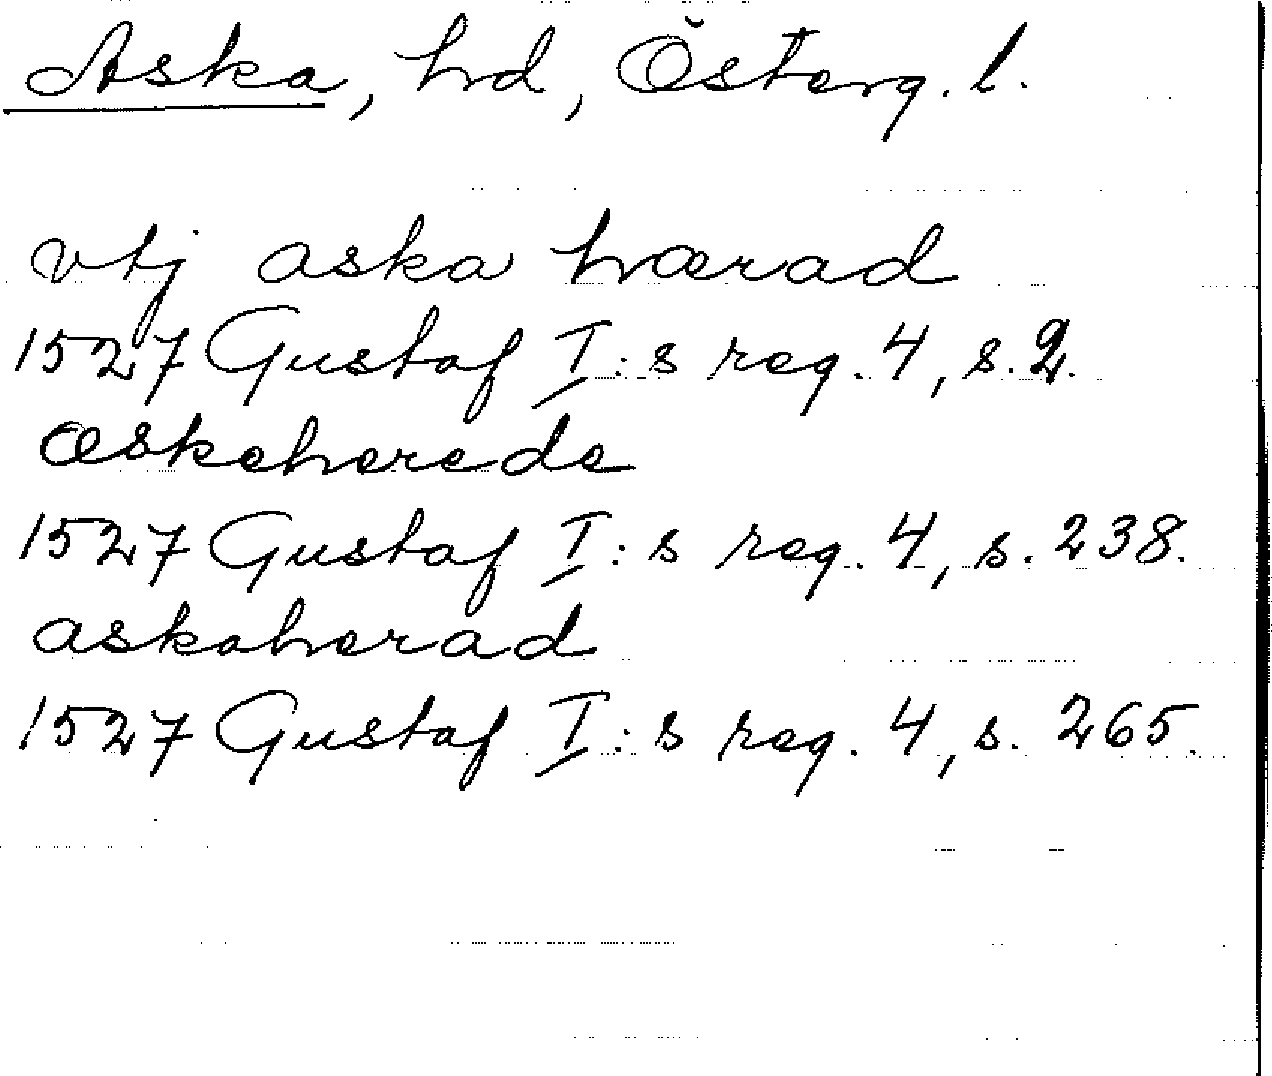 Aska, hd, Österg. l.
vtj aska hærad
1527 Gustaf I:s reg. 4, s. 2.
æskeherede
1527 Gustaf I:s reg. 4, s. 238.
askaherad
1527 Gustaf I:s reg. 4, s. 265.